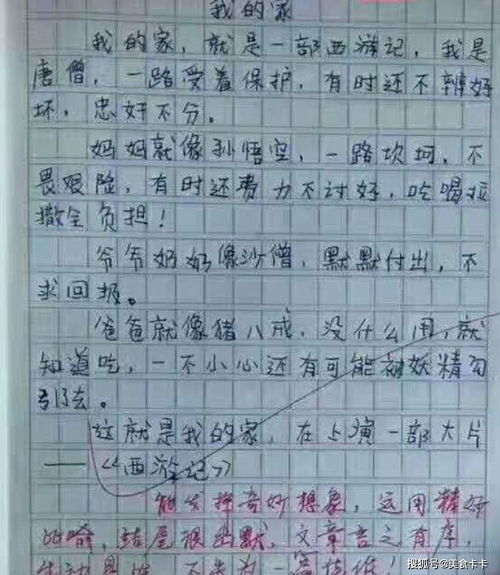 我的家
我的家，就是一部西游记，我是
唐僧，一路受着保护，有时还不辨好
坏，忠奸不分。
妈妈就像孙悟空，一路坎坷，不
畏艰险，有时还费力不讨好，吃喝拉
撒全负担！
爷爷奶奶像沙僧，默默付出，不
求回报。
爸爸就像猪八戒，没什么用，就
知道吃，一不小心还有可能被妖精勾
引去。
这就是我的家，在上演一部大片
——《西游记》
能发挥奇妙想象，运用精妙
比喻，结尾很幽默，文章言之有序，
生动具体，不失为一篇佳作！
搜狐号@美食卡卡